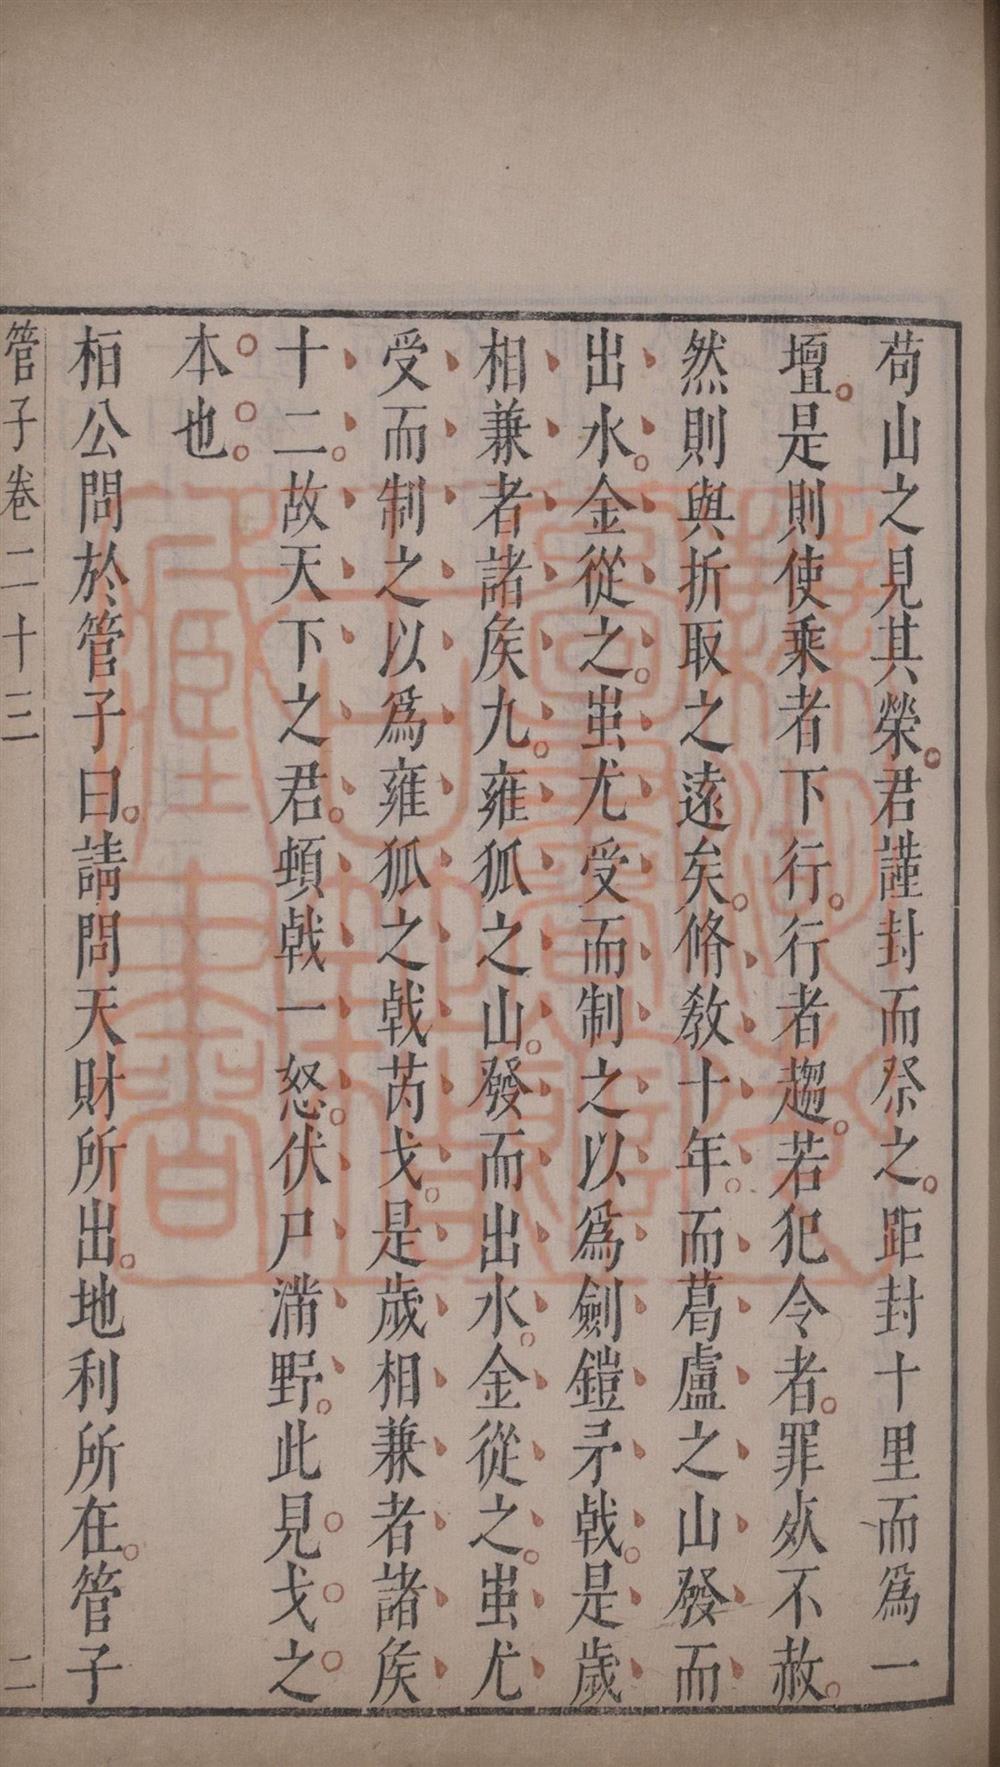 苟山之見其榮君謹封而祭之距封十里而爲一
壇是則使乘者下行行者趨若犯令者罪死不赦
然則與折取之遠矣脩教十年而葛盧之山發而
出水金從之蚩尤受而制之以爲劍鎧矛戟是歲
相兼者諸矦九雍狐之山發而出水金從之蚩尤
受而制之以爲雍狐之戟芮戈是歲相兼者諸矦
十二故天下之君頓戟一怒伏尸滿野此見戈之
本也
桓公問於管子曰請問天財所出地利所在管子
管子卷二十三
二